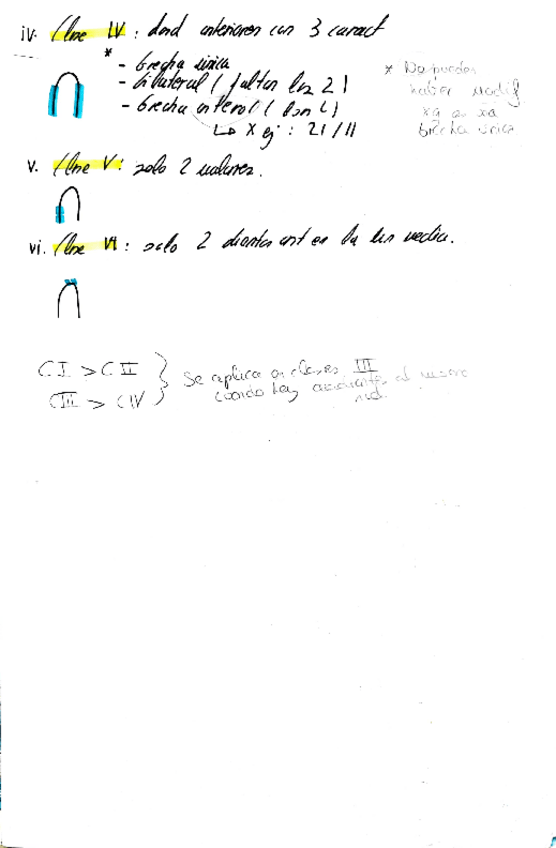 iv. Clase IV : dend anteriores con 3 caract
* - brecha única
- bilateral ( faltan los 2 )
- brecha anterior (
↳ x ej : 21 / 11
* No pueden
haber modif
xq es xa
brecha única
v. Clase V : solo 2 molares.
vi. Clase VI : solo 2 dientes ant en la lin media.
C I > C II
C III > C IV
} Se aplica a clases III
cuando hay al